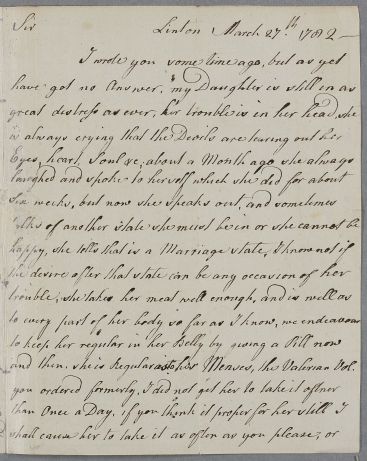 Sir Linton March 27.th 1782 —
I wrote you some time ago, but as yet
have got no Answer, my Daughter is still in as
great distress as ever, her trouble is in her head, she
is always crying that the Devils are tearing out her
Eyes, heart, Soul &c, about a Month ago she always
laughed and spoke to herself which she did for about
six weeks, but now she speaks out, and sometimes
talks of another state she must be in or she cannot be
happy, she tells that is a Marriage state, I know not if
the desire after that state can be any occasion of her
trouble; she takes her meat well enough, and is well as
to every part of her body so far as I know, we endeavour
to keep her regular in her Belly by giving a Pill now
and then. she is Regular as to her Menses, the Valerian Vol.
you ordered formerly, I did not get her to take it oftner
than Once a Day, if you think it proper for her still I
shall cause her to take it as often as you please, or